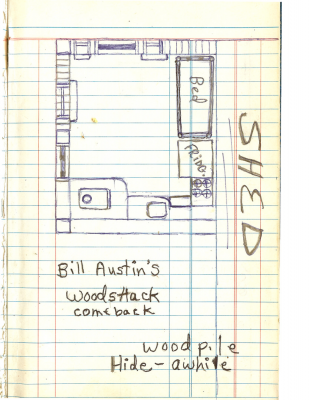 Bed
FRIDG.
SHED
Bill Austin's
WoodsHack
comeback
wood pile
Hide-awhile